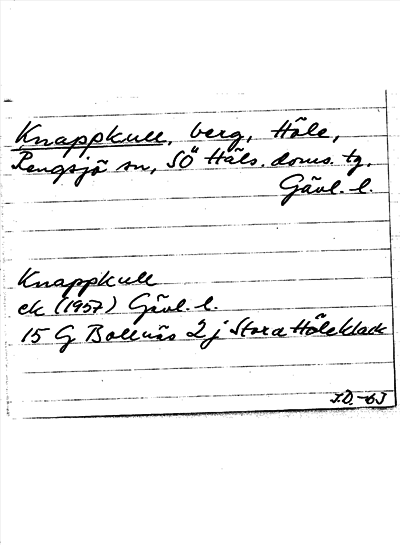 Knappkull, berg, Höle,
Rengsjö sn, SÖ Häls. doms. tg,
Gävl. l.
Knappkull
ek (1957) Gävl. l.
15 G Bollnäs 2 j Stora Höleklack
J.D. -63